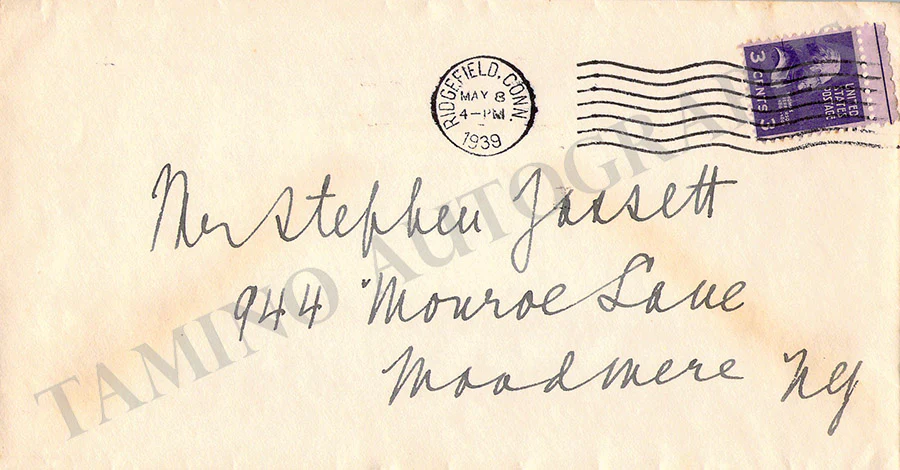 RIDGEFIELD, CONN.
MAY 8
4-PM
1939
UNITED
STATES
POSTAGE
3 CENTS 3
TAMINO AUTOGRAPHS
Mr Stephen Fassett
944 Monroe Lane
Woodmere NY